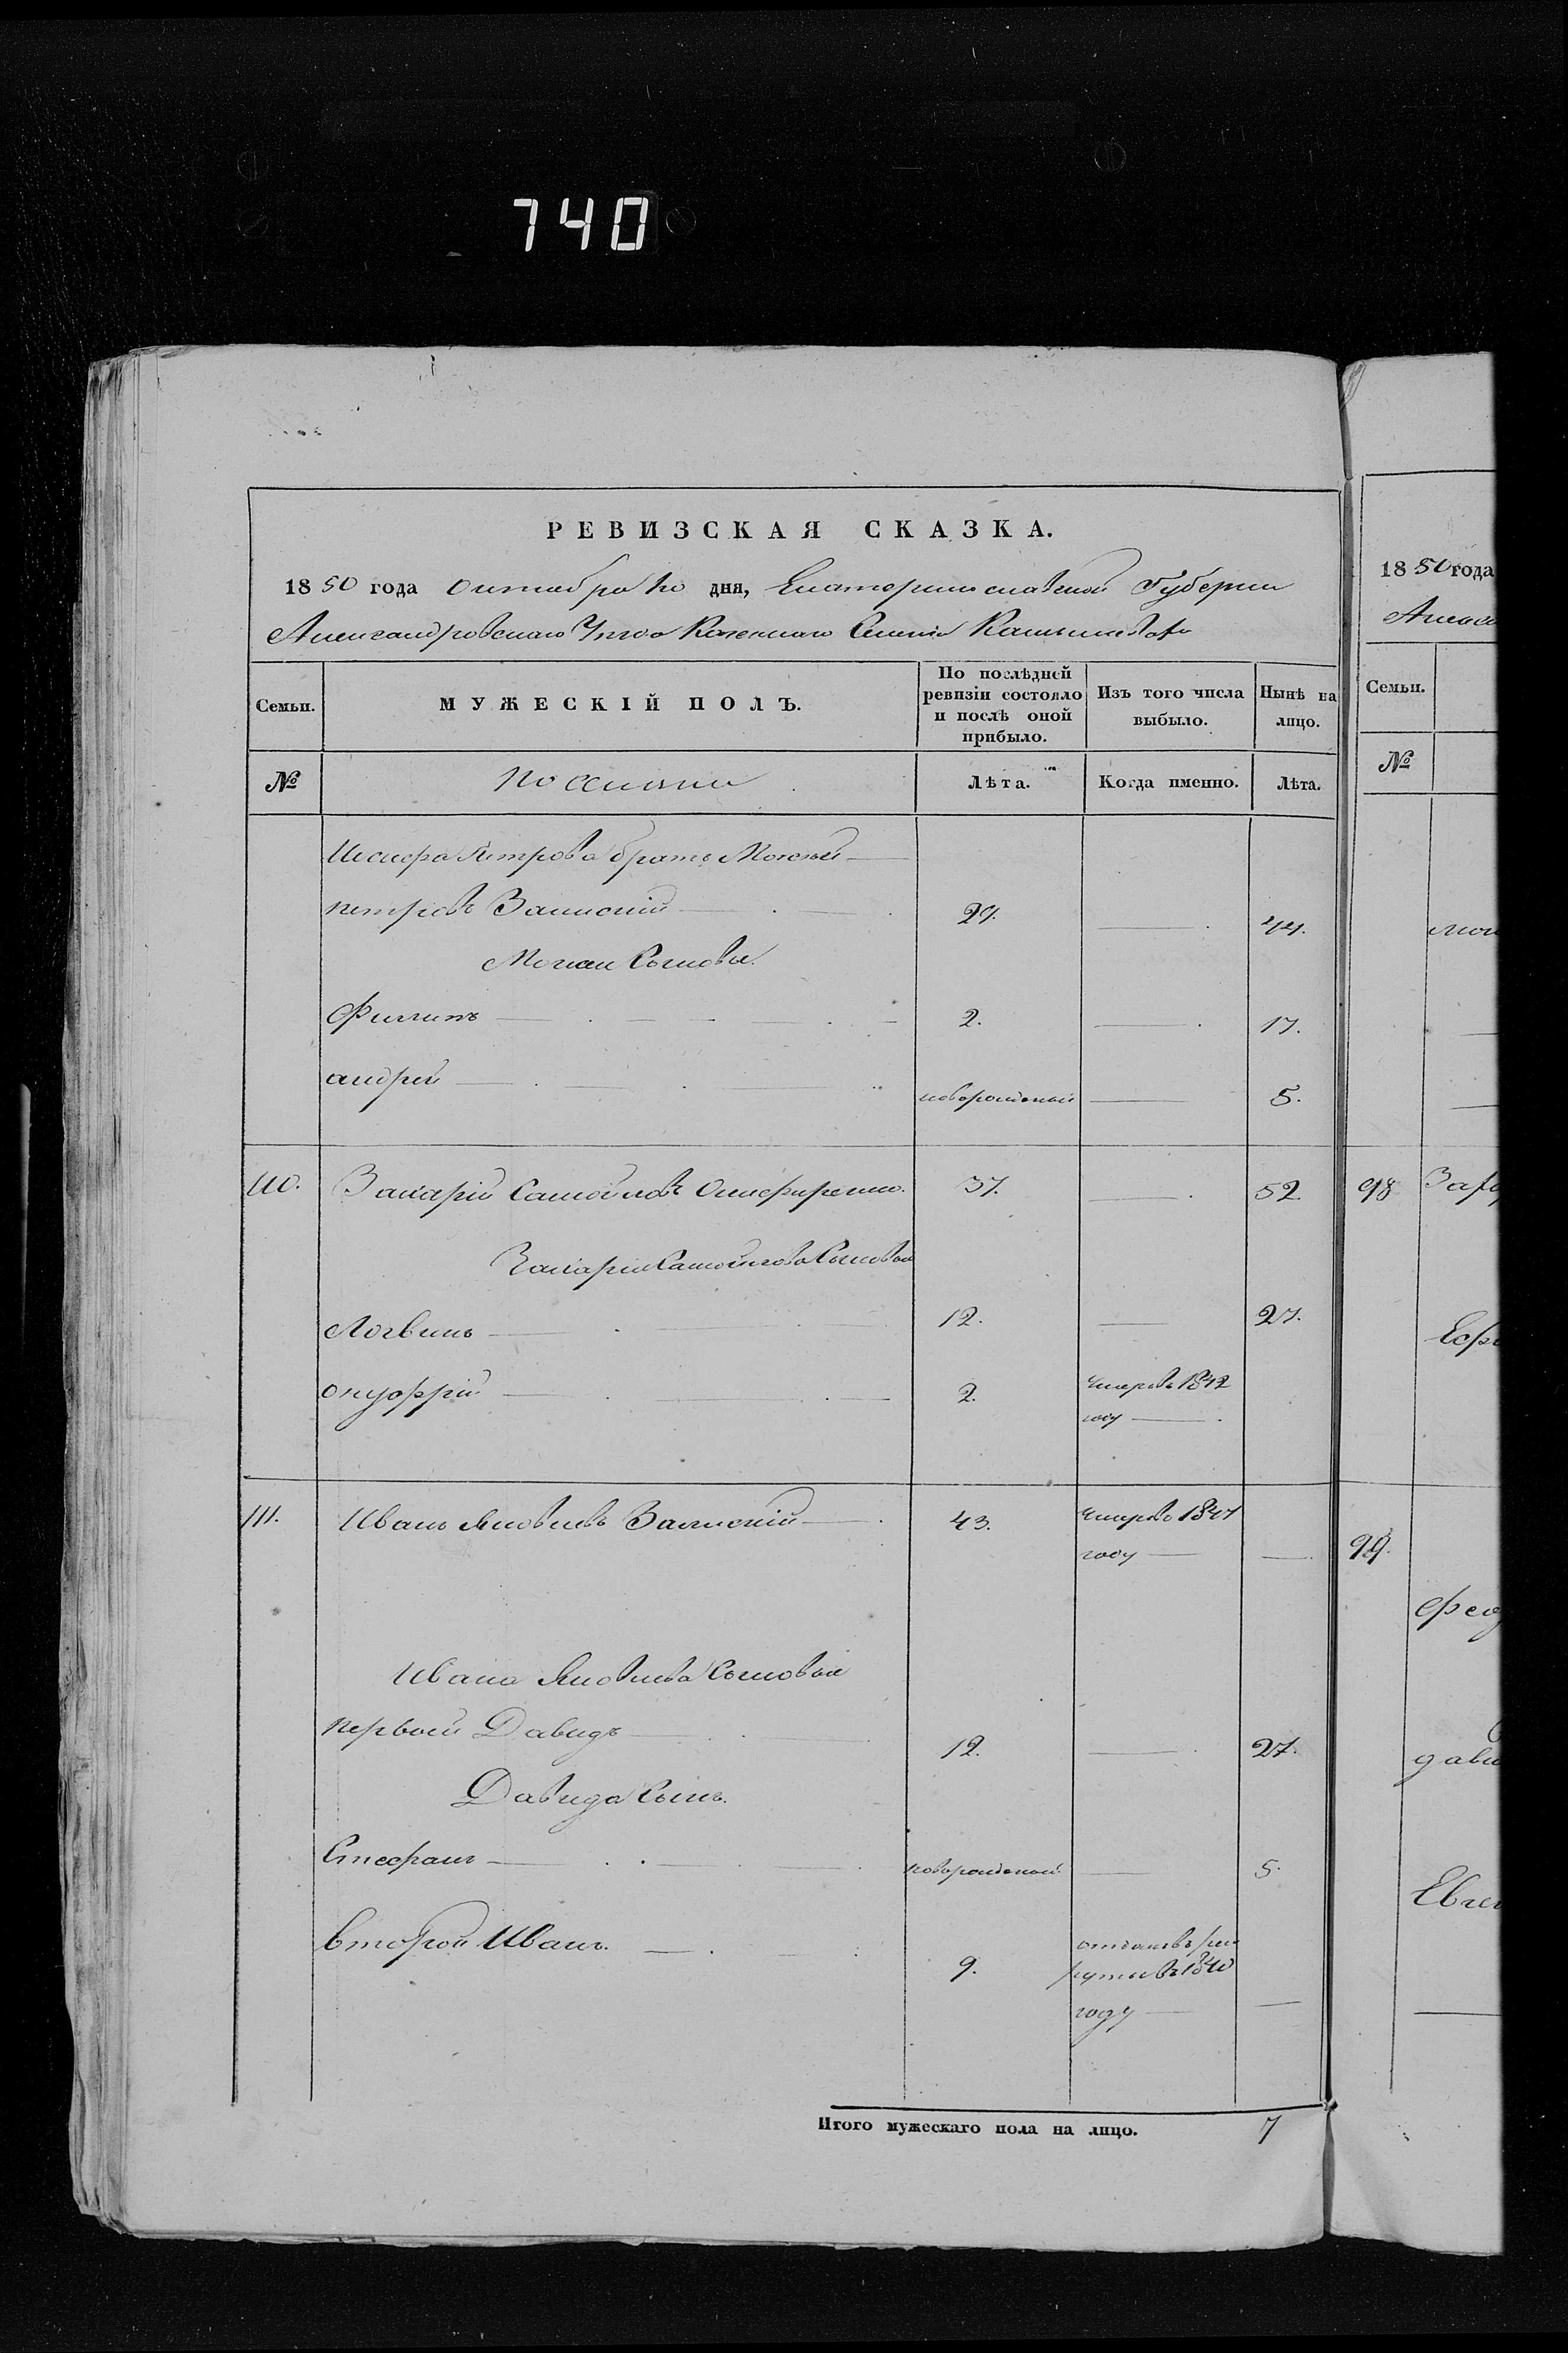 740
РЕВИЗСКАЯ СКАЗКА.
1850 года октября 10 дня, Екатеринославской Губернии
Александровскаго Уезда Казеннаго Селенія
Семьи.
МУЖЕСКІЙ ПОЛЪ.
По послѣдней ревизіи состояло и послѣ оной прибыло.
Изъ того числа выбыло.
Нынѣ на лицо.
№
Лѣта.
Когда именно.
Лѣта.
Петрова братъ Мокѣй
петровъ Залискій 29. 44.
Мокея Сыновья
Филипъ 2. 17.
андрей новорожденый 5.
110. Захарій Самойловъ Онофренко. 37. 52.
Захарія Самойлова Сыновья
Логвинъ 12. 27.
онуфрій 2. умеръ въ 1842
году
111. Иванъ Яковлевъ Залискій 43. умеръ въ 1847
году
Ивана Яковлева Сыновья
первой Давидъ 12. 27.
Давида Сынъ
Стефанъ новорожденый 5.
второй Иванъ. 9. отданъ въ рек
руты въ 1840
году
Итого мужескаго пола на лицо. 7
1850 года
Семьи.
№
98
99.